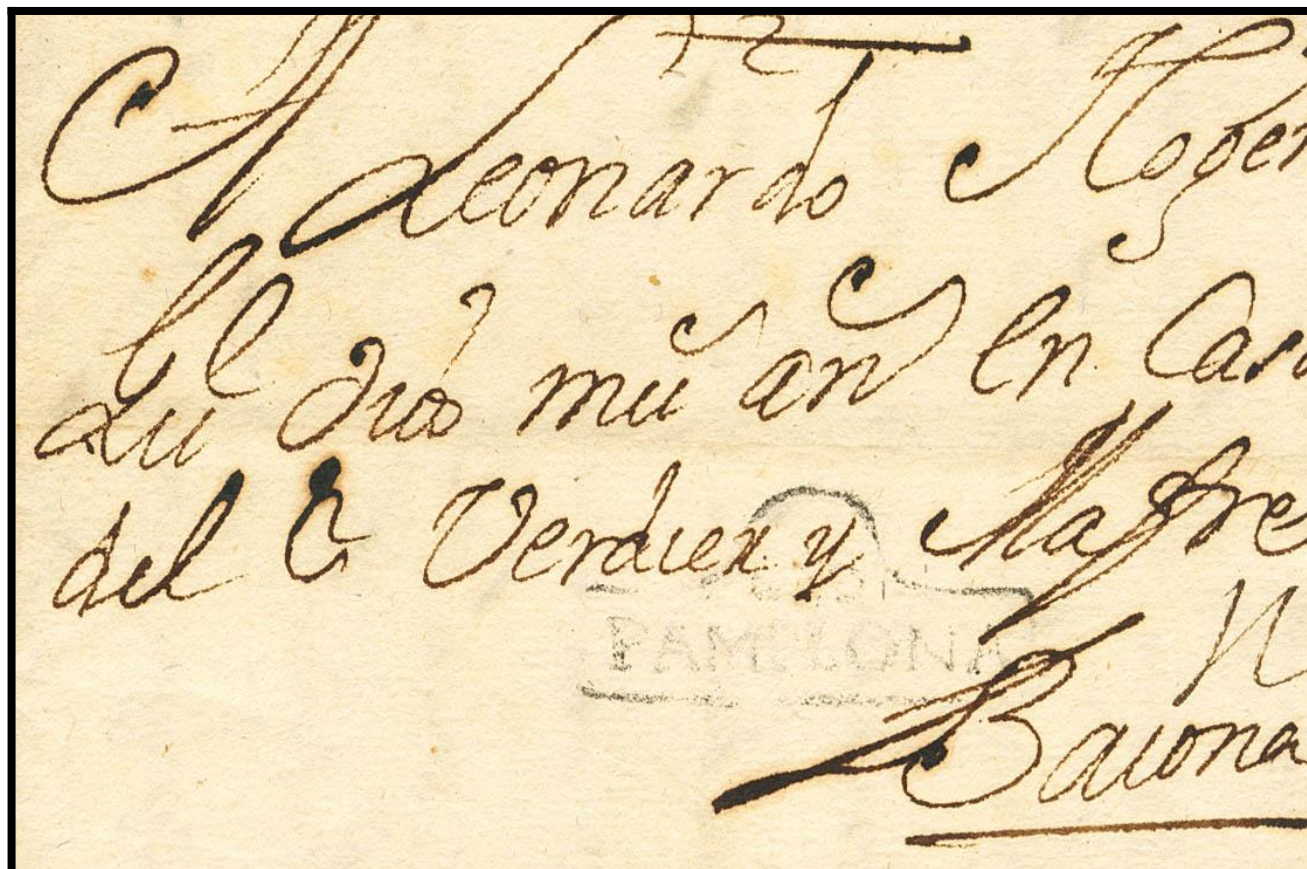 A Leonardo Roger
Dios mu an en Casa
del Sr Verduex y Maffre
PAMPLONA
Baiona